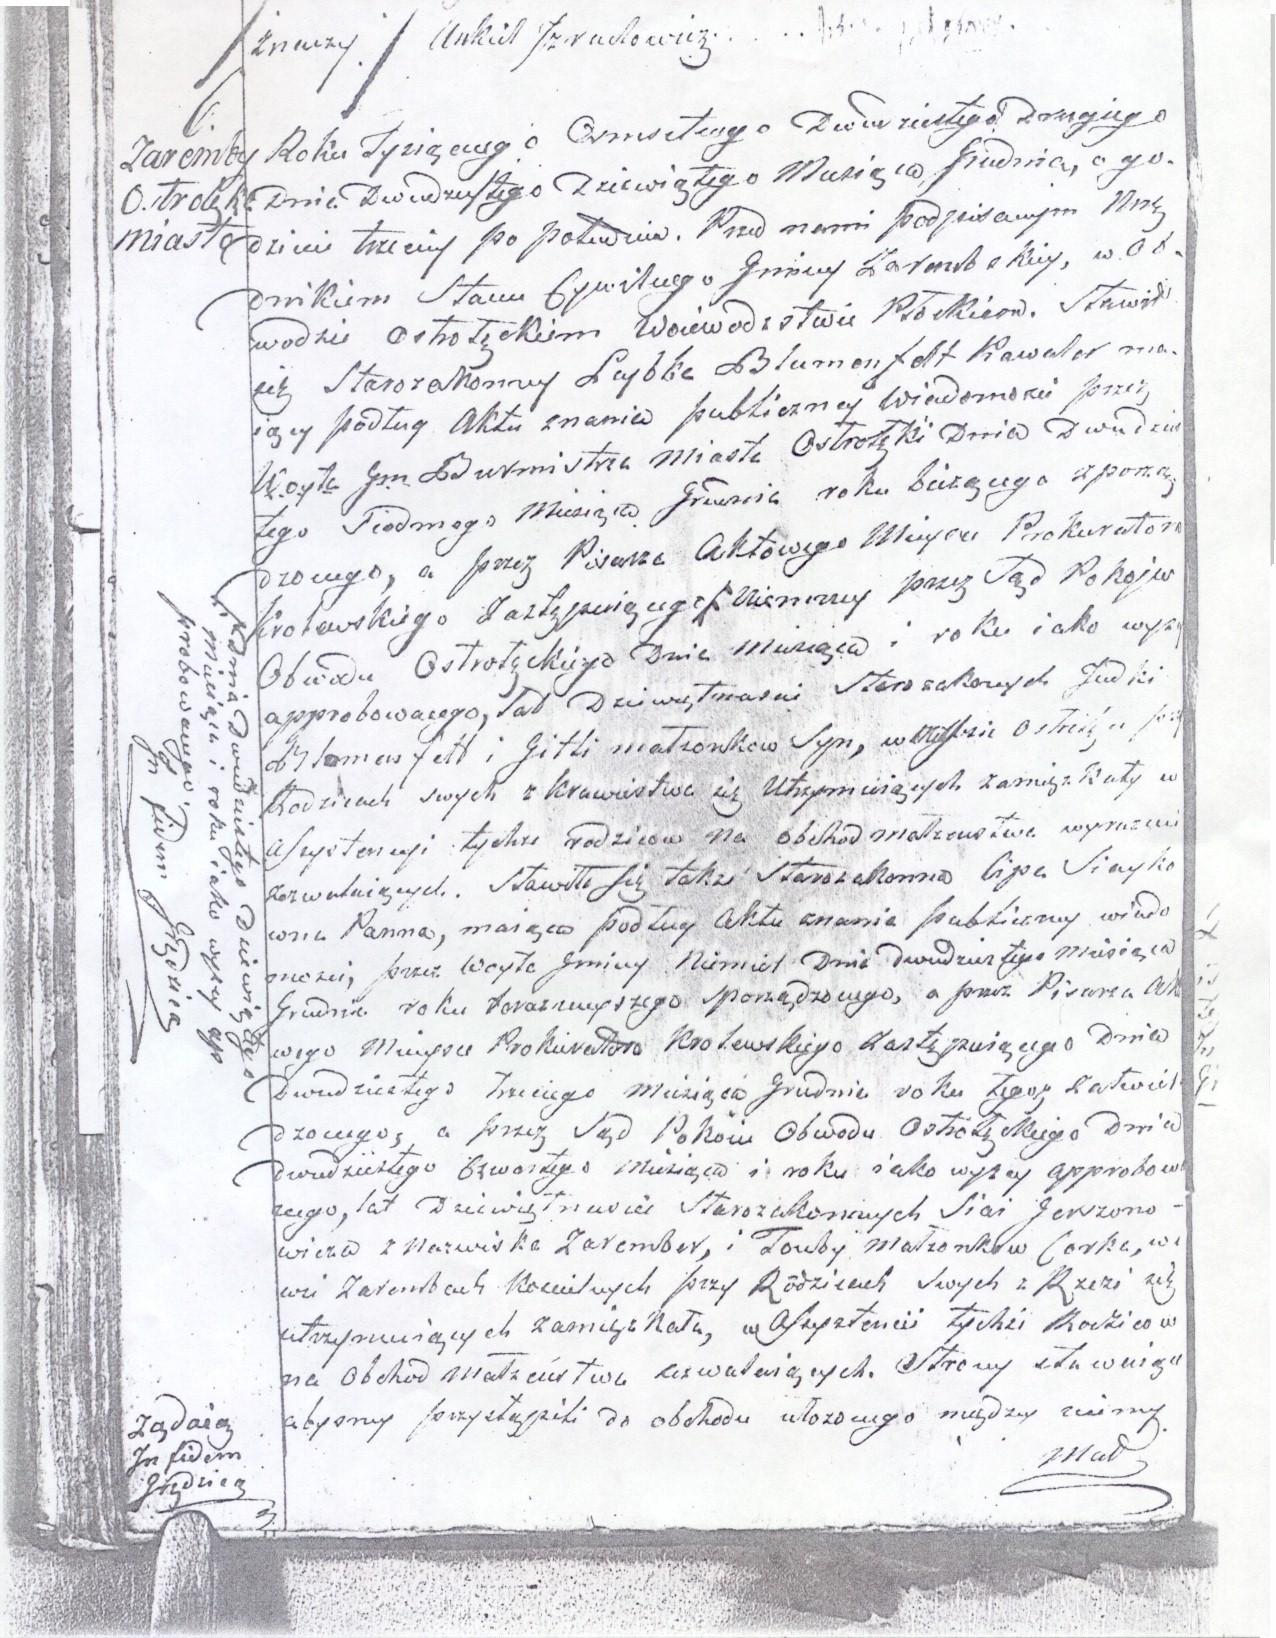 znaczy. Ankiel Izraelowicz.
6.
Zaremby
Ostrołęka
miasto
Roku Tysiącznego Osmsetnego Dwudziestego Drugiego
Dnia Dwudziestego Dziewiątego Miesiąca Grudnia, o go-
dzinie trzeciey po południu. Przed nami podpisanym Urzę
dnikiem Stanu Cywilnego Gminy Zarembskiey, w Ob-
wodzie Ostrołęckiem Woiewodztwie Płockiem. Stawił
się Starozakonny Leybka Blumenfelt Kawaler ma-
iący podług Aktu znania publiczney wiadomości przez
Woyta Gm. Burmistrza miasta Ostrołęki Dnia Dwudzies
tego Siodmego Miesiąca Grudnia roku bieżącego sporzą
dzonego, a przez Pisarza Aktowego Mieysce Prokuratora
Krolewskiego Zastępuiącego przez Sąd Pokoju
Obwodu Ostrołęckiego Dnia Miesiąca i roku iako wyży
approbowanego, lat Dziewiętnaście Starozakonnych Judki
Blomenfelt i Gitli małzonkow Syn, w przy
Rodzicach swych z Krawiectwa się Utrzymuiących zamięszkały w
Assystencyi tychże rodzicow na obchod małzenstwa wyraznie
zezwalaiących. Stawiła się także Starozakonna Cipa Siayko
wna Panna, maiąca podług Aktu znania publiczney wiado
mosci, przez Woyta Gminy Nimiel Dnia dwudziestego miesiąca
Grudnia roku teraznieyszego sporządzonego, a przez Pisarza Akto
wego Mieysce Prokuratora Krolewskiego Zastępuiącego Dnia
Dwudziestego trzeciego Miesiąca Grudnia roku tegoż Zatwier
dzonego, a przez Sąd Pokoiu Obwodu Ostrołęckiego Dnia
dwudziestego Czwartego Miesiąca i roku iako wyżey approbowa
nego, lat Dziewiętnascie Starozakonnych Siai Jerszono-
wicza z Nazwiska Zarember, i Touby Małzonkow Corka, we
wsi Zarembach Koscielnych przy Rodzicach swych z Rzezi się
utrzymuiących zamięszkała, w Assystencii tychże Rodzicow
na Obchod Małzeństwa zezwalaiących. Strony stawaiące
abysmy przystąpili do obchodu ułozonego między niemi
Mał
Dnia Dwudziestego Dziewiątego
miesiąca i roku iako wyżey ap
probowanego.
In fidem Grędzica
Żądaią
In fidem
Grędzica